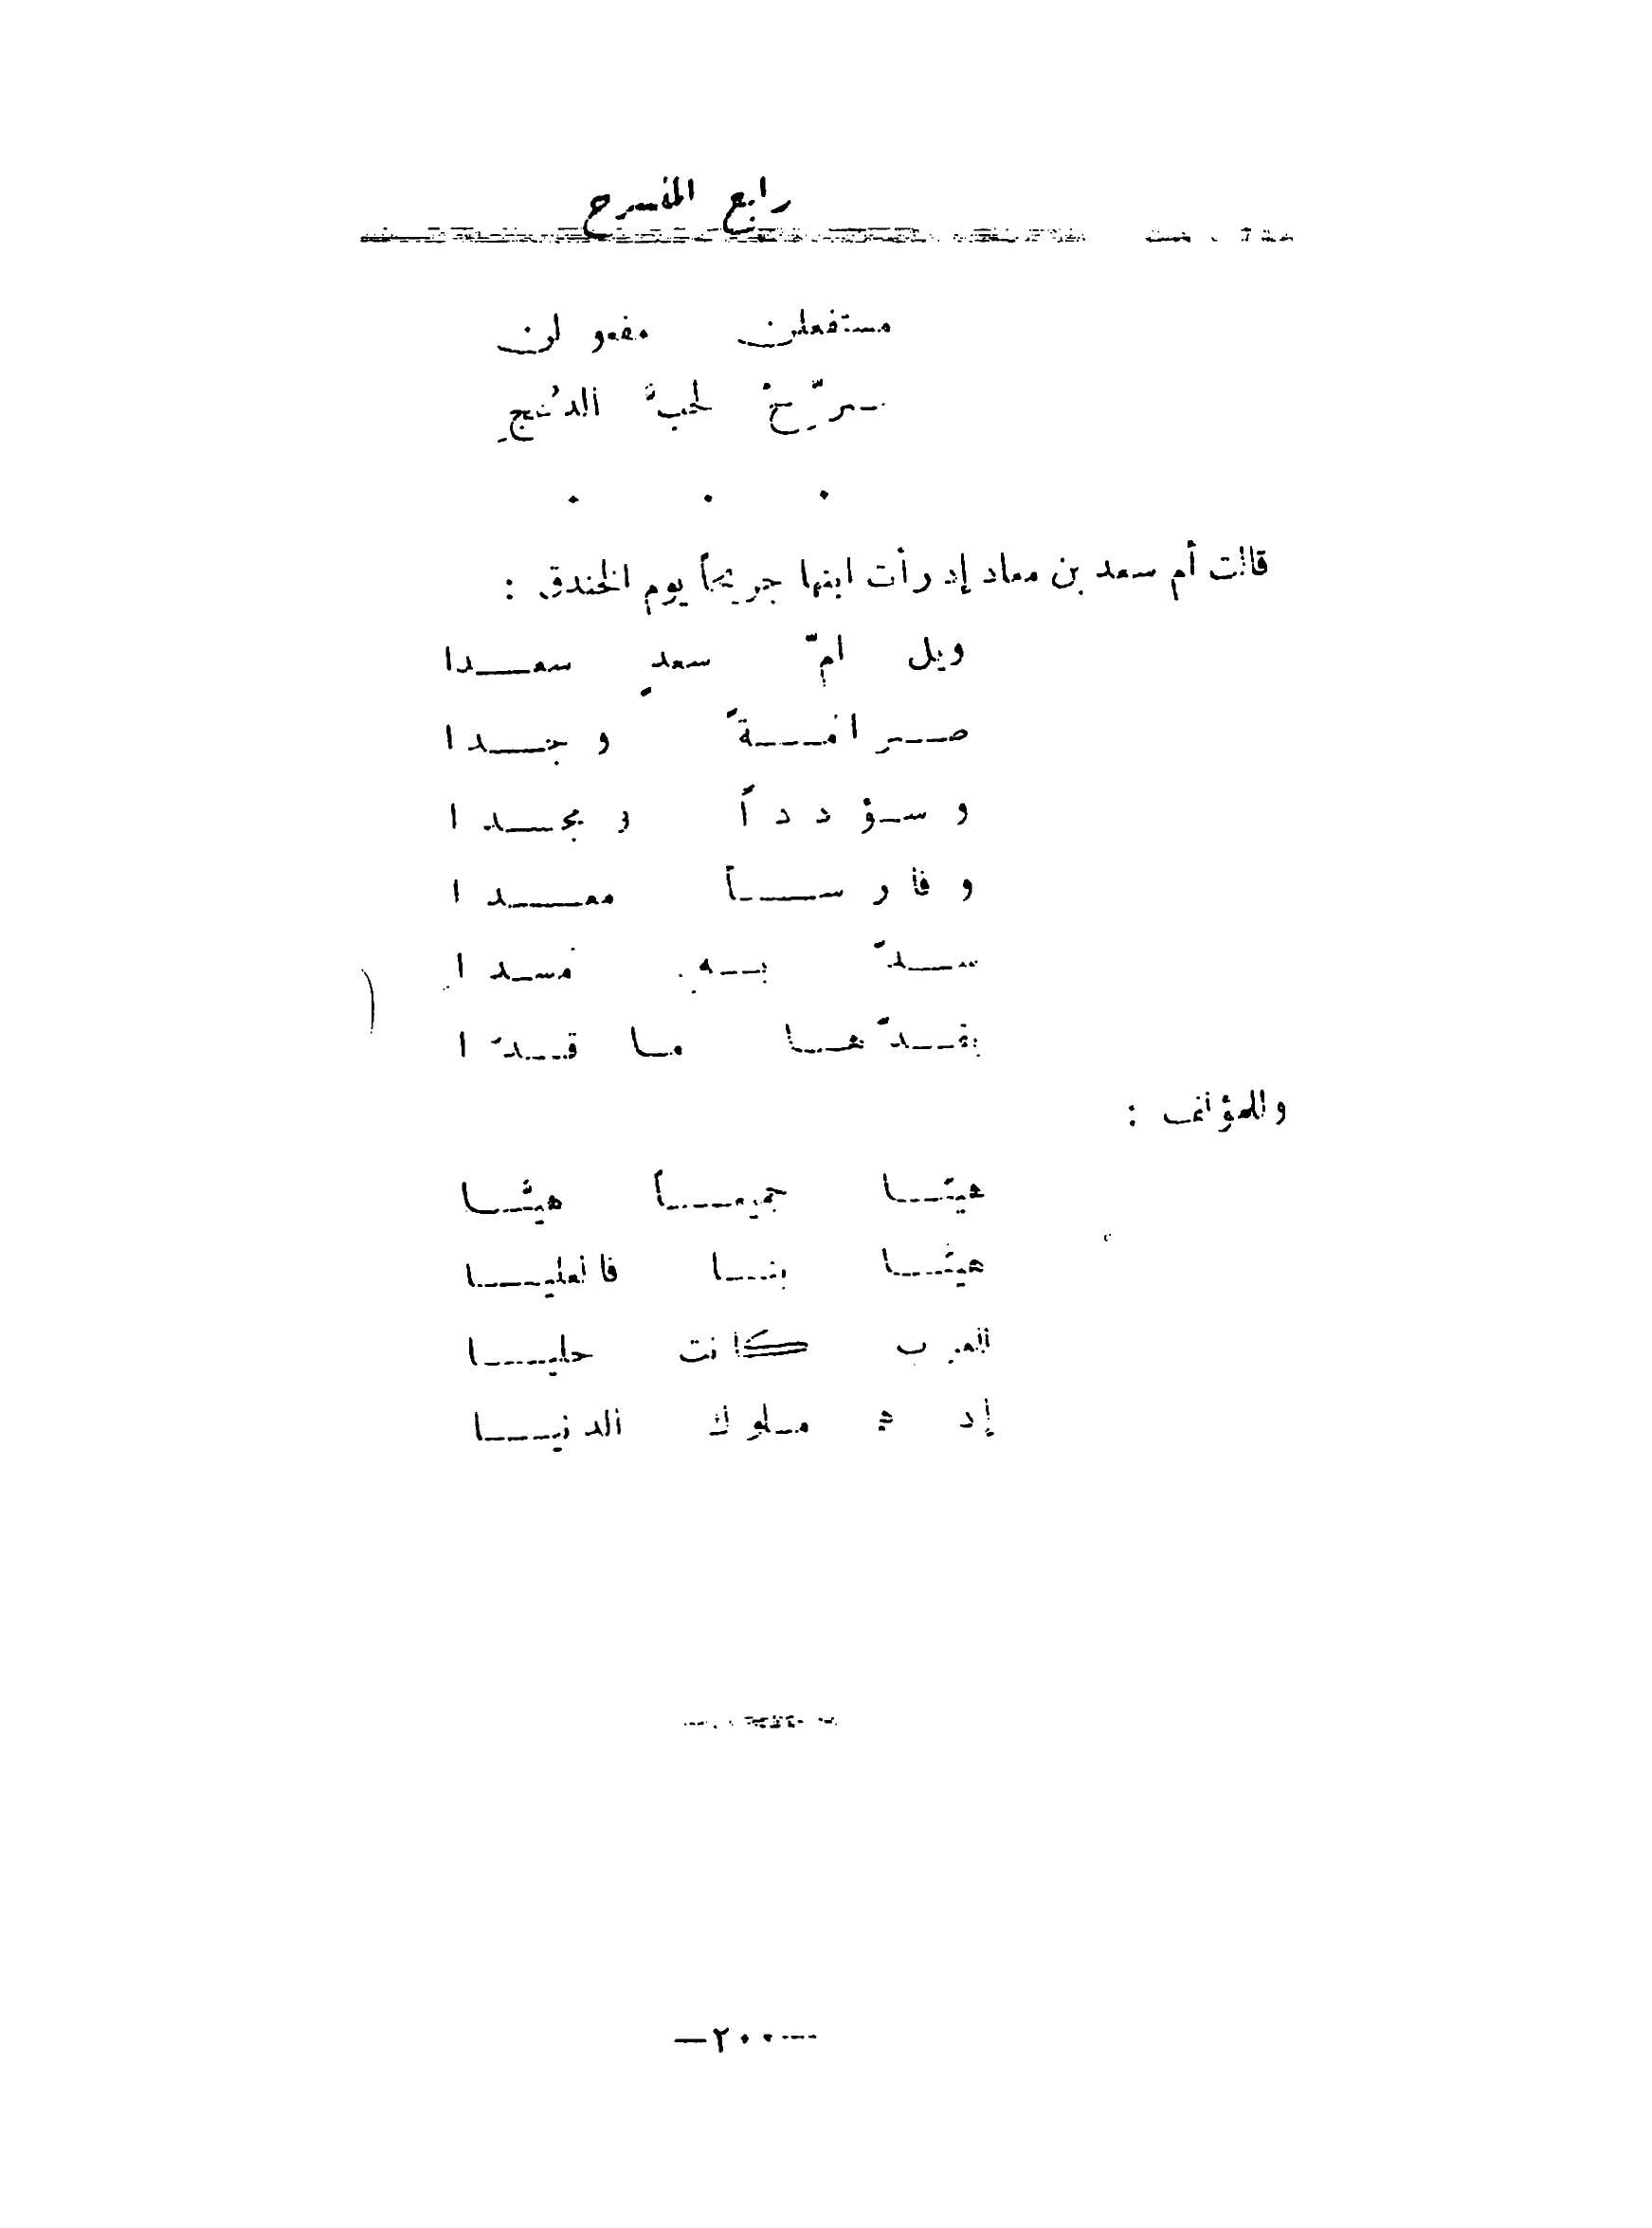 رابع المنسرح
مستفعلن مفعولن
سرِّحْ لحبِّ الدُّعجِ
قالت أم سعد بن معاذ إذ رأت ابنها جريحاً يوم الخندق :
ويل امّ سعدٍ سعدا
صرامةً وجدا
وسؤدداً ومجدا
وفارساً معدا
سدّ به مسدا
يقدّ هاما قدّا
وللمؤلف :
هيّا جميعاً هيّا
هيّا بنا فالعليا
العرب كانت حليا
إذ هم ملوك الدنيا
—٢٠٠—